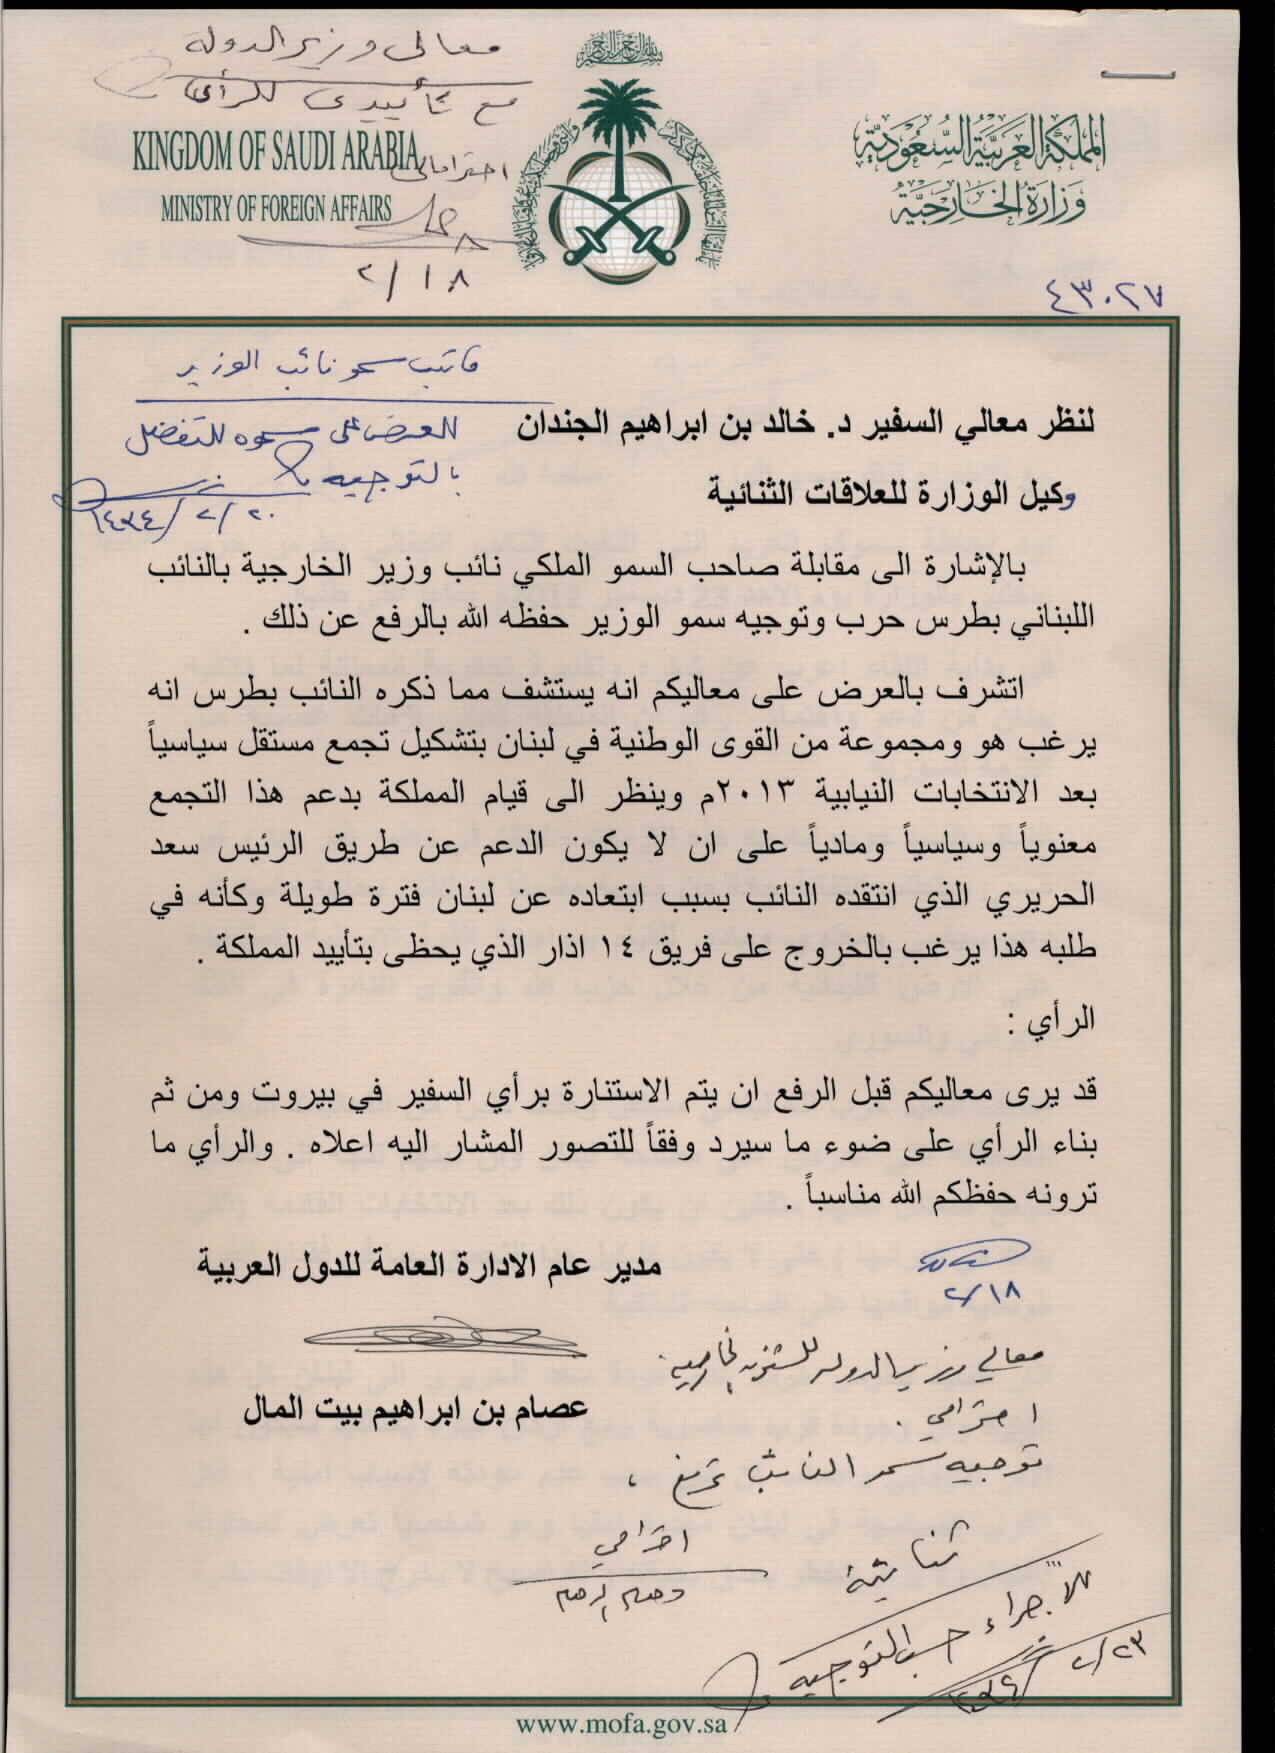 معالي وزير الدولة
مع تأييدي للرأي
احتراماتي
٢/١٨
KINGDOM OF SAUDI ARABIA
MINISTRY OF FOREIGN AFFAIRS
المملكة العربية السعودية
وزارة الخارجية
٤٣٠٢٧
مكتب سمو نائب الوزير
للعرض على سموه للتفضل
بالتوجيه
١٤٣٤/٢/٢٠
لنظر معالي السفير د. خالد بن ابراهيم الجندان
وكيل الوزارة للعلاقات الثنائية
بالإشارة الى مقابلة صاحب السمو الملكي نائب وزير الخارجية بالنائب
اللبناني بطرس حرب وتوجيه سمو الوزير حفظه الله بالرفع عن ذلك .
اتشرف بالعرض على معاليكم انه يستشف مما ذكره النائب بطرس انه
يرغب هو ومجموعة من القوى الوطنية في لبنان بتشكيل تجمع مستقل سياسياً
بعد الانتخابات النيابية ٢٠١٣م وينظر الى قيام المملكة بدعم هذا التجمع
معنوياً وسياسياً ومادياً على ان لا يكون الدعم عن طريق الرئيس سعد
الحريري الذي انتقده النائب بسبب ابتعاده عن لبنان فترة طويلة وكأنه في
طلبه هذا يرغب بالخروج على فريق ١٤ اذار الذي يحظى بتأييد المملكة .
الرأي :
قد يرى معاليكم قبل الرفع ان يتم الاستنارة برأي السفير في بيروت ومن ثم
بناء الرأي على ضوء ما سيرد وفقاً للتصور المشار اليه اعلاه . والرأي ما
ترونه حفظكم الله مناسباً .
مدير عام الادارة العامة للدول العربية
٢/١٨
عصام بن ابراهيم بيت المال
معالي وزير الدولة للشئون الخارجية
احترامي .
توجيه سمو النائب
احترامي
ثنائية
للاجراء حسب التوجيه
٢/٢٣
www.mofa.gov.sa